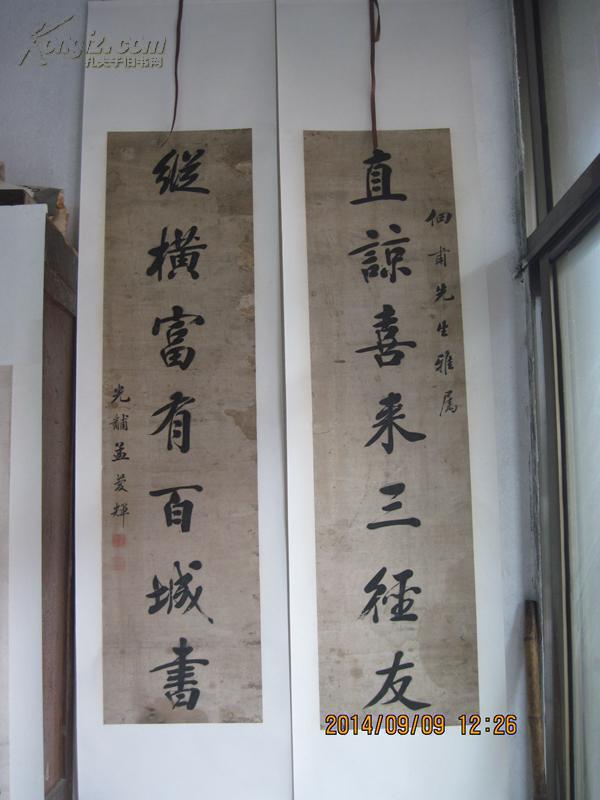 Kongfz.com
孔夫子旧书网
佃甫先生雅属
直諒喜来三徑友
縱橫富有百城書
光黼孟慶輝
2014/09/09 12:26